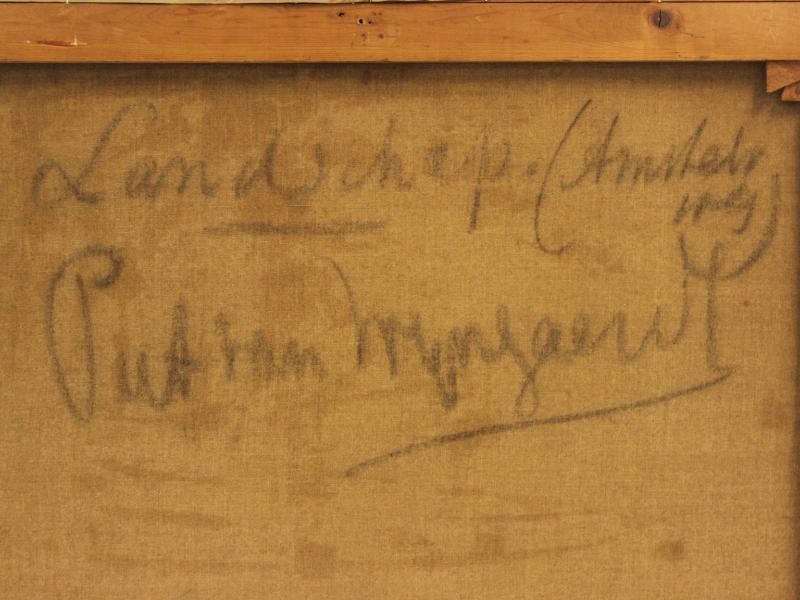 Landschap. (Amstelv
weg)
Piet van Wijngaerdt